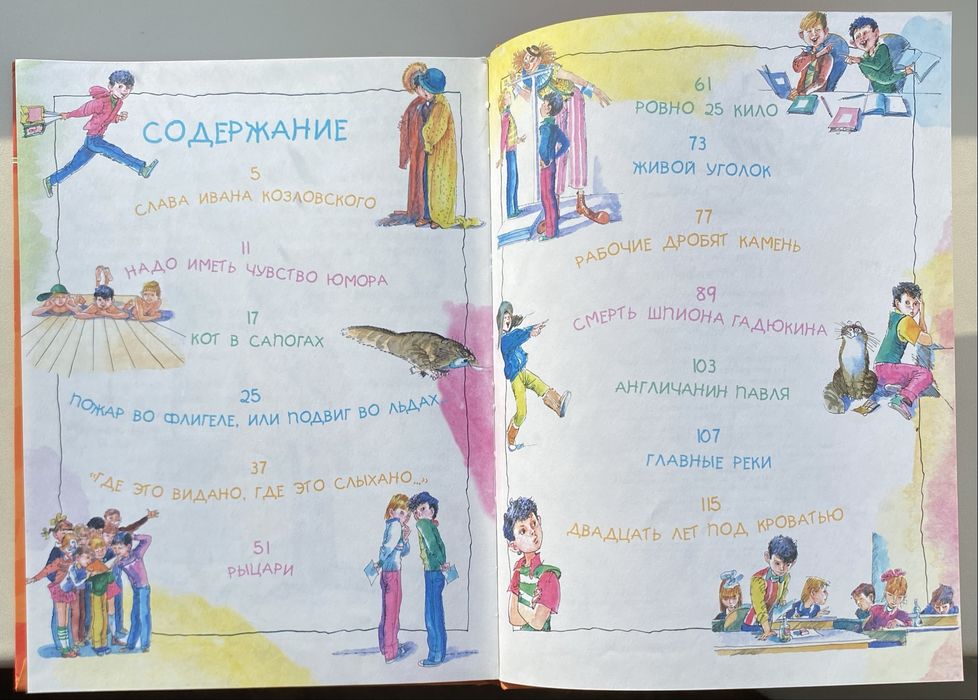 СОДЕРЖАНИЕ
5
СЛАВА ИВАНА КОЗЛОВСКОГО
11
НАДО ИМЕТЬ ЧУВСТВО ЮМОРА
17
КОТ В САПОГАХ
25
ПОЖАР ВО ФЛИГЕЛЕ, ИЛИ ПОДВИГ ВО ЛЬДАХ
37
"ГДЕ ЭТО ВИДАНО, ГДЕ ЭТО СЛЫХАНО..."
51
РЫЦАРИ
61
РОВНО 25 КИЛО
73
ЖИВОЙ УГОЛОК
77
РАБОЧИЕ ДРОБЯТ КАМЕНЬ
89
СМЕРТЬ ШПИОНА ГАДЮКИНА
103
АНГЛИЧАНИН ПАВЛЯ
107
ГЛАВНЫЕ РЕКИ
115
ДВАДЦАТЬ ЛЕТ ПОД КРОВАТЬЮ